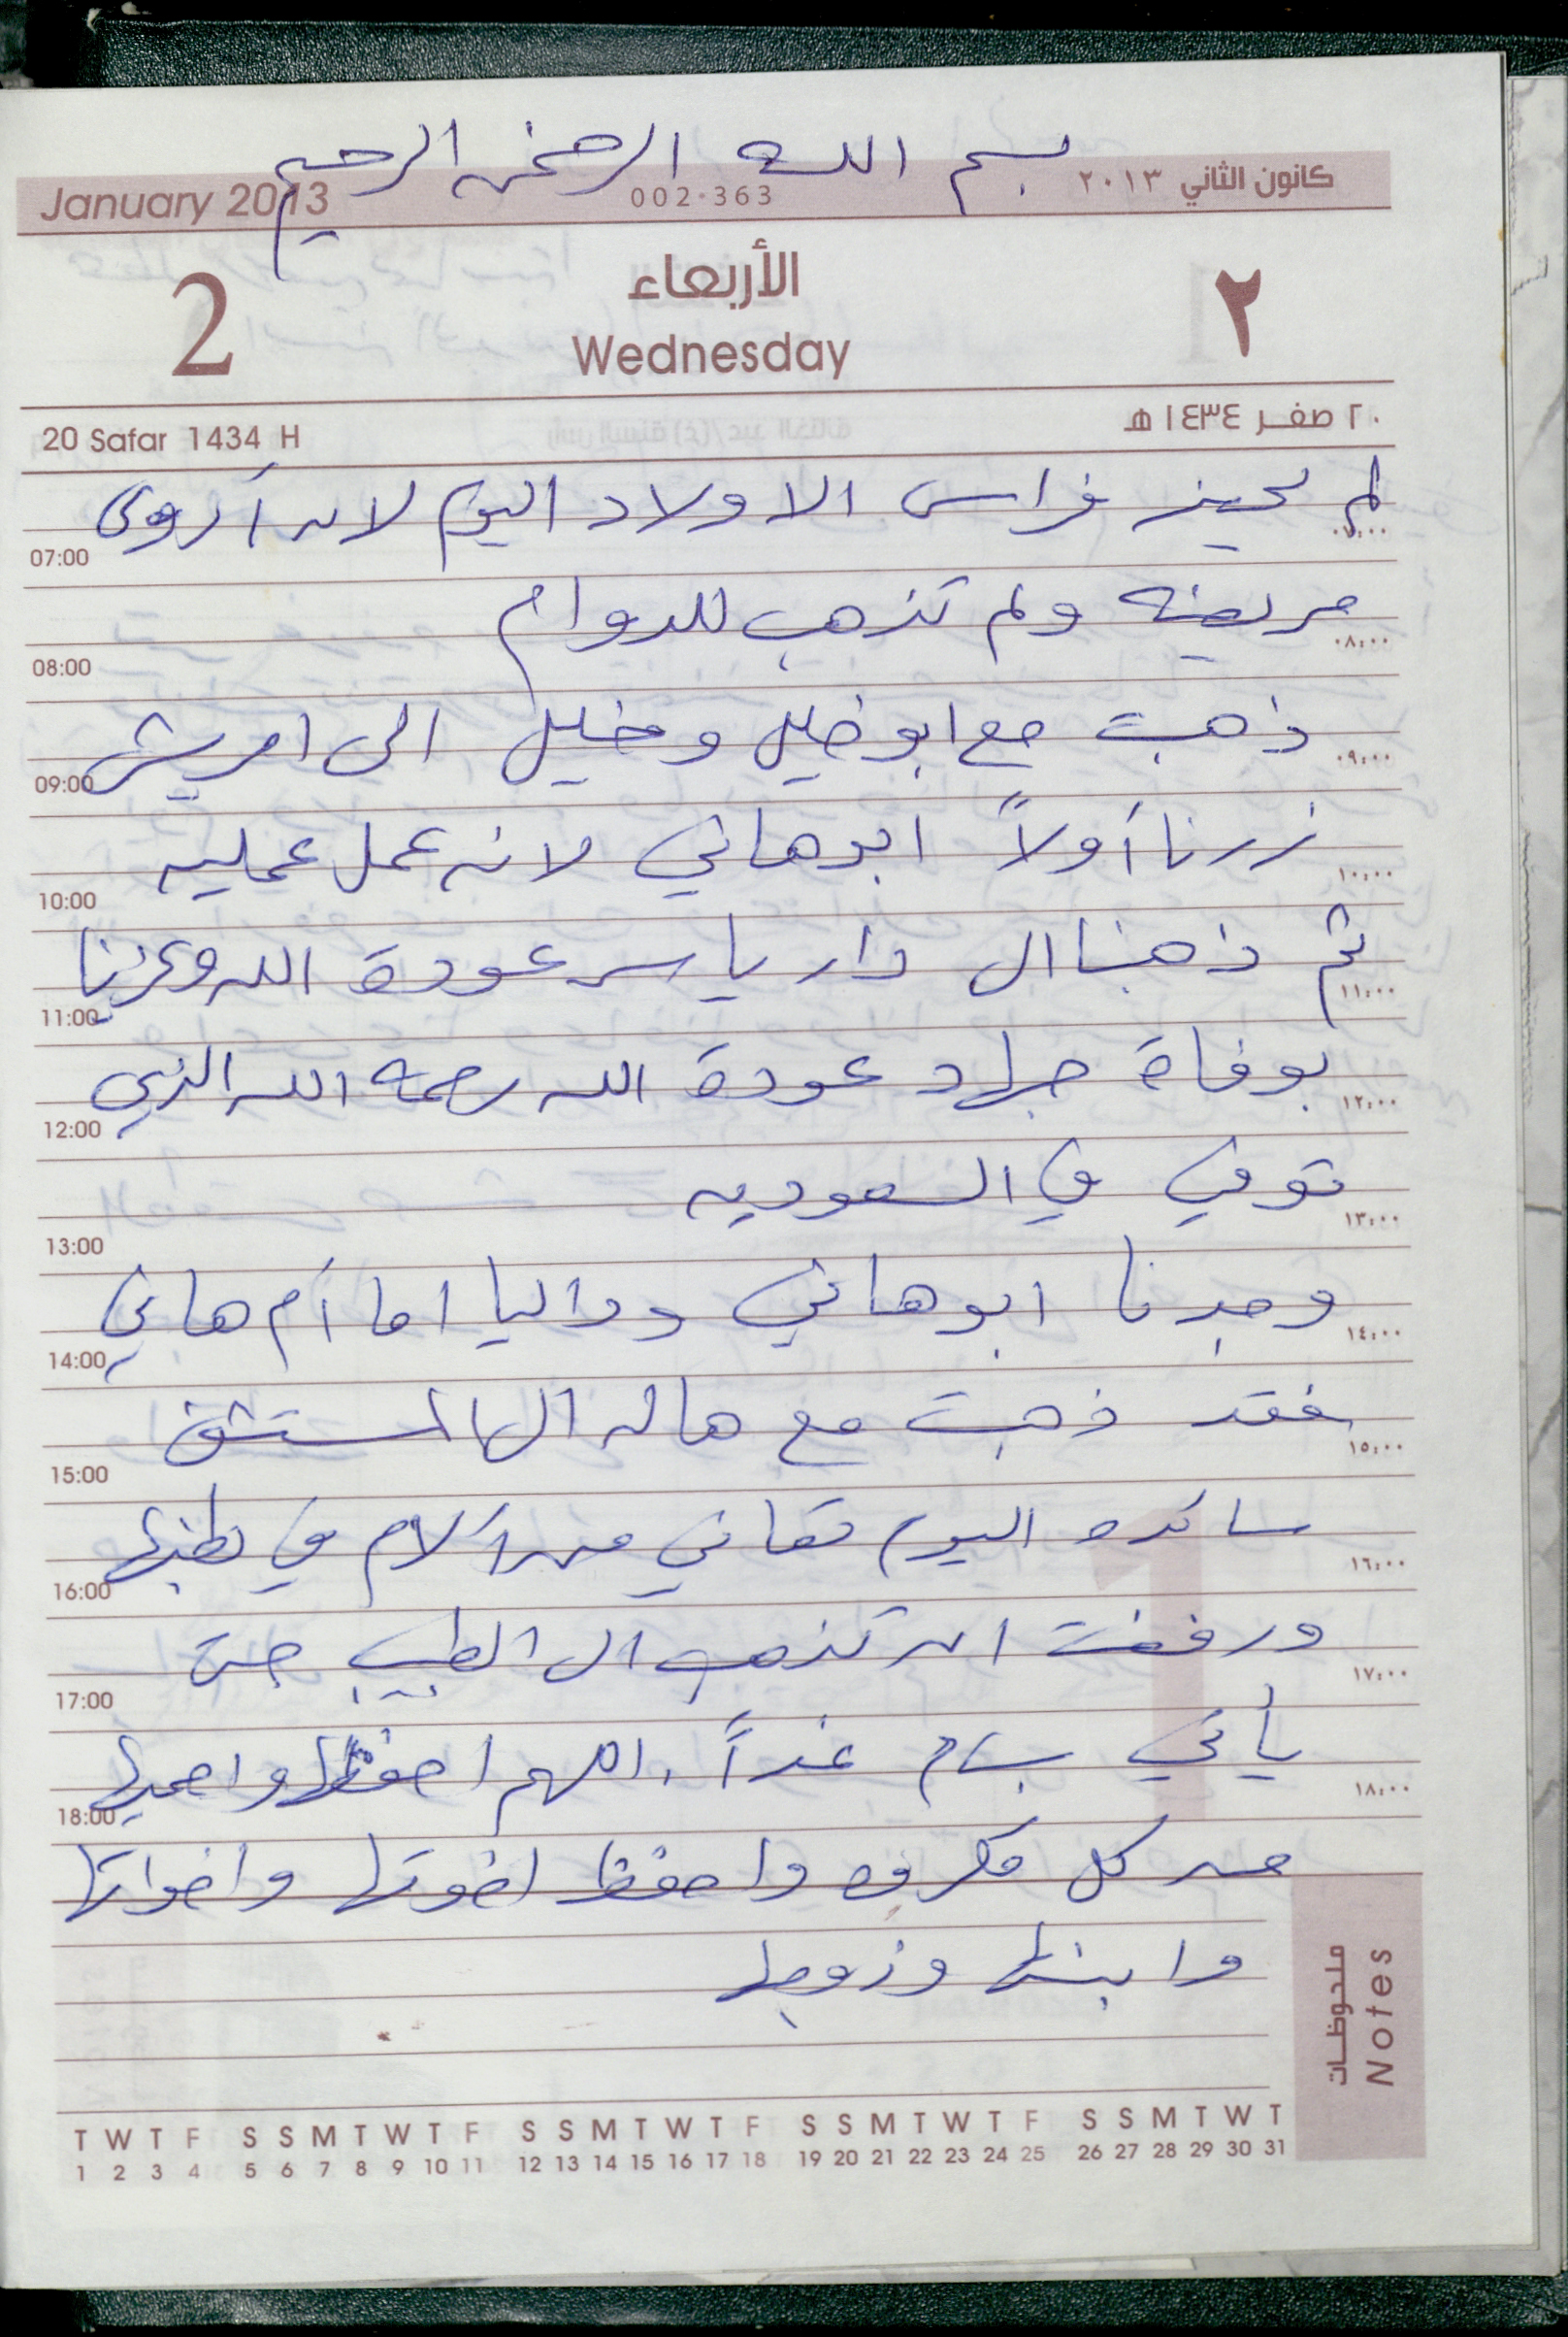 بسم الله الرحمن الرحيم
January 2013 002-363 كانون الثاني ٢٠١٣
2 الأربعاء ٢
Wednesday
20 Safar 1434 H ٢٠ صفر ١٤٣٤ هـ
لم فراس الاولاد اليوم لان أروى
07:00 ٠٧:٠٠
مريضه ولم تذهب للدوام
08:00 ٠٨:٠٠
ذهبت مع ابو خليل وخليل الى امريش
09:00 ٠٩:٠٠
زرنا أولاً ابو هاني لانه عمل عمليه
10:00 ١٠:٠٠
ثم ذهبنا الى دار ياسر عودة الله وعزينا
11:00 ١١:٠٠
بوفاة جهاد عودة الله رحمه الله الذي
12:00 ١٢:٠٠
توفي في السعوديه
13:00 ١٣:٠٠
وجدنا ابو هاني وداليا اما أم هاني
14:00 ١٤:٠٠
فقد ذهبت مع هاله الى المستشفى
15:00 ١٥:٠٠
سائده اليوم تعاني من آلام في بطنها
16:00 ١٦:٠٠
ورفضت ان تذهب الى الطبيب حتى
17:00 ١٧:٠٠
يأتي بسام غداً . اللهم احفظها واحميها
18:00 ١٨:٠٠
من كل مكروه واحفظ اخوتها واخواتها
وابنها وزوجها
ملحوظات
Notes
T W T F S S M T W T F S S M T W T F S S M T W T F S S M T W T
1 2 3 4 5 6 7 8 9 10 11 12 13 14 15 16 17 18 19 20 21 22 23 24 25 26 27 28 29 30 31